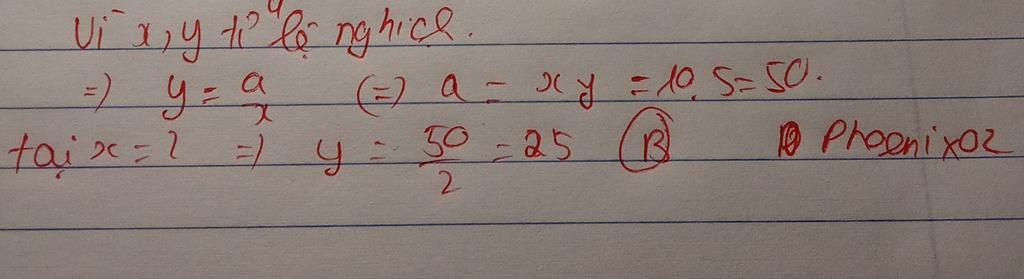 Vì x, y tỉ lệ nghịch.
=) y = a/x (=) a = xy = 10.5=50.
tại x=2 =) y = 50/2 = 25 (B) Phoenix02